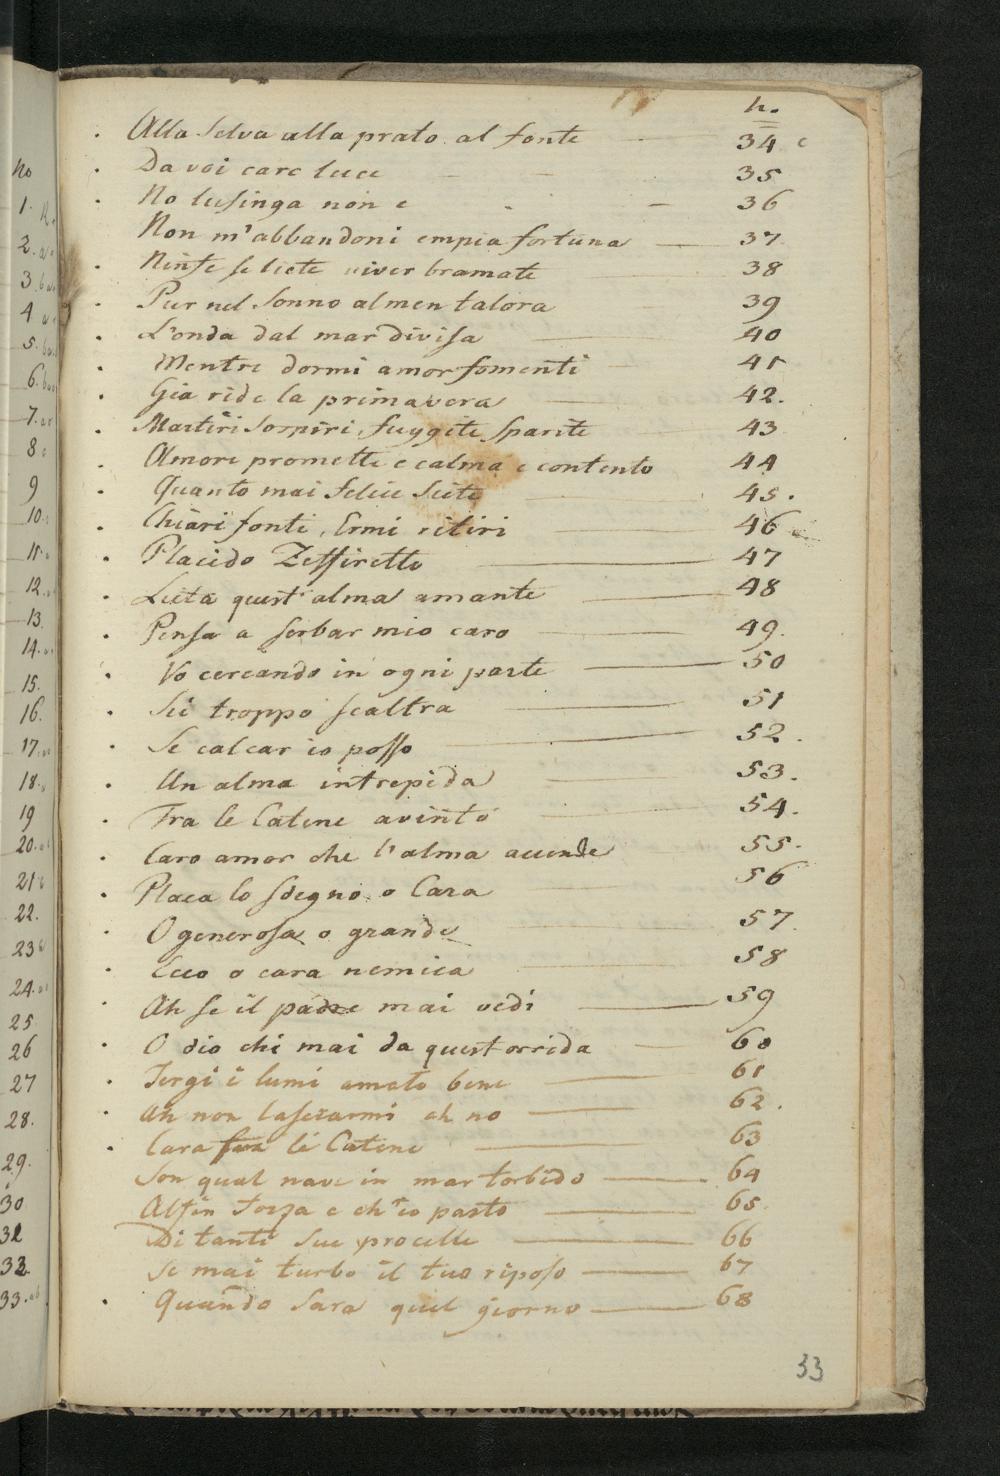 n.
Alla Selva alla prato al fonte 34
Da voi care luce 35
No lusinga non e 36
Non m'abbandoni empia fortuna 37
Ninfe se liete viver bramate 38
Pur nel Sonno almen talora 39
L'onda dal mar divisa 40
Mentre dormi amor fomenti 41
Gia ride la primavera 42.
Martiri Sospiri fuggite sparite 43
Amore promette e calma e contento 44
Quanto mai felice siete 45.
Chiari fonti, Ermi ritiri 46
Placido Zeffiretto 47
Lieta quest' alma amante 48
Pensa a serbar mio caro 49.
Vo cercando in ogni parte 50
Sei troppo scaltra 51
Se calcar io posso 52.
Un alma intrepida 53.
Fra le Catene avinto 54.
Caro amor che l'alma accende 55.
Placa lo sdegno o Cara 56
O generosa o grande 57.
Ecco o cara nemica 58
Ah se il padre mai vedi 59
O dio chi mai da quest orrida 60
Tergi i lumi amato bene 61
Ah non lasciarmi ah no 62.
Cara fra le Catene 63
Son qual nave in mar torbido 64
Alfin forza e ch'io parto 65.
Di tante sue procelle 66
Se mai turbo il tuo riposo 67
Quando sara quel giorno 68
33
No
1.
2.
3.
4
5.
6.
7.
8.
9
10.
11.
12.
13.
14.
15.
16.
17.
18.
19
20.
21
22.
23
24.
25
26
27
28.
29.
30
31
32.
33.